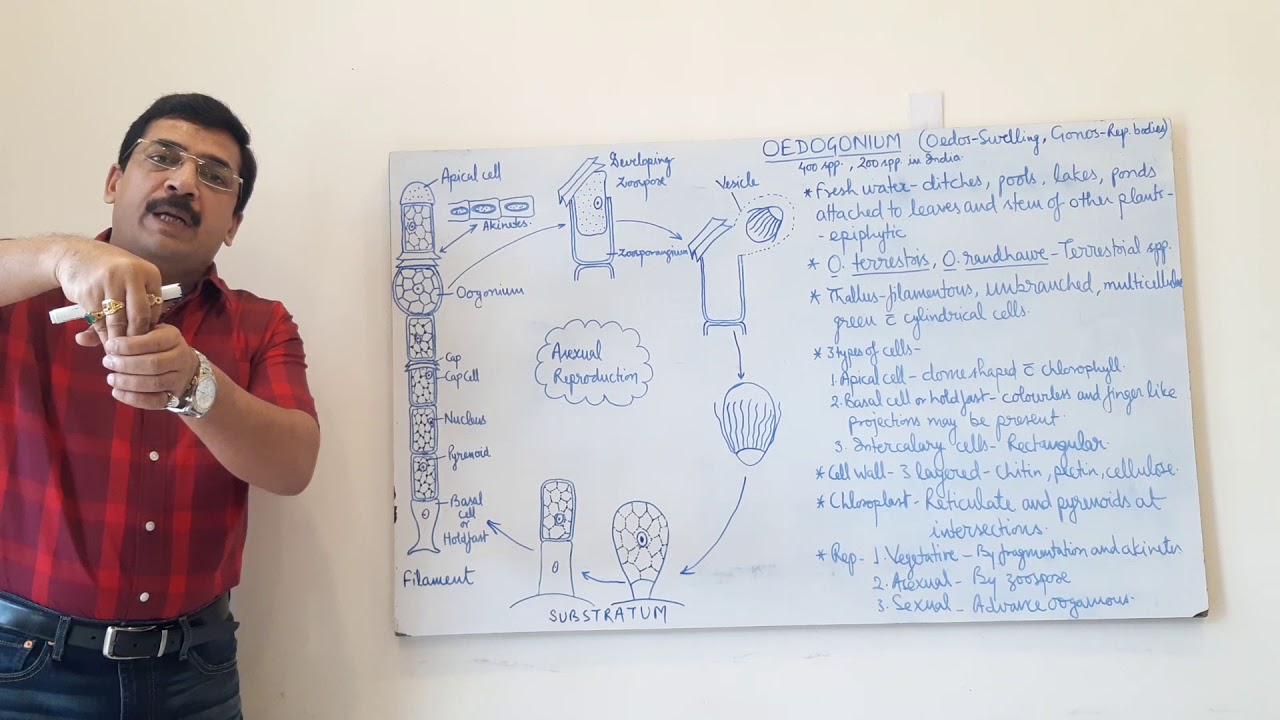 OEDOGONIUM (Oedos-Swelling, Gonos-Rep. bodies)
400 spp., 200 spp. in India.
* Fresh water-ditches, pools, lakes, ponds
attached to leaves and stem of other plants-
- epiphytic
* O. terrestris, O. randhawe - Terrestrial spp.
* Thallus-filamentous, unbranched, multicellular
green c̄ cylindrical cells.
* 3 types of cells-
1. Apical cell - dome shaped c̄ chlorophyll.
2. Basal cell or holdfast - colourless and finger like
projections may be present.
3. Intercalary cells - Rectangular.
* Cell wall - 3 layered - chitin, pectin, cellulose.
* Chloroplast - Reticulate and pyrenoids at
intersections.
* Rep- 1. Vegetative - By fragmentation and akinetes
2. Asexual - By zoospose
3. Sexual - Advance oogamous.
Apical cell
Akinetes.
Oogonium
Cap
Cap Cell
Nucleus
Pyrenoid
Basal
Cell
or
Holdfast
Filament
Developing
Zoospose
Zoosporangium
Vesicle
Asexual
Reproduction
SUBSTRATUM